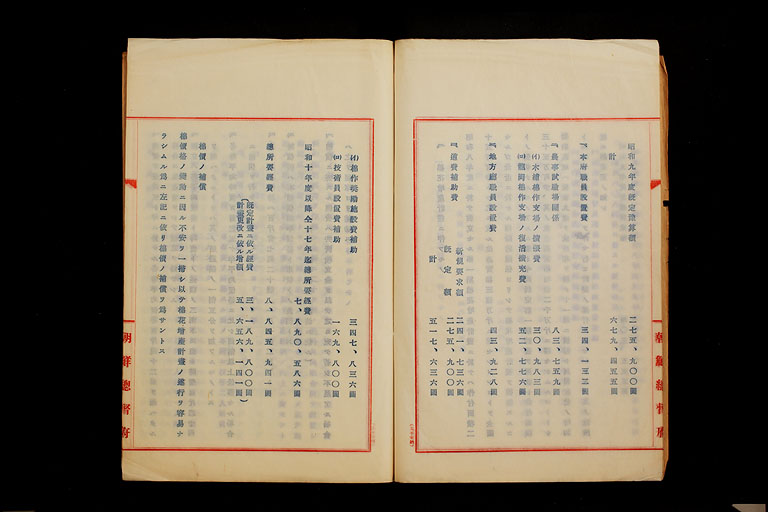 昭和九年度既定豫算額 二七五、九〇〇圓
計 六七九、四五五圓
本府職員設置費 三四、一三二圓
農事試驗場關係 八三、七五九圓
(イ)木浦棉作支場ノ擴張費 三〇、九八三圓
(ロ)龍岡棉作支場ノ復活擴充費 五二、七七六圓
地方廳職員設置費 四三、九二八圓
運費補助費
新規要求額 二四一、七三六圓
既定額 二七五、九〇〇圓
計 五一七、六三六圓
(イ)棉作奬勵施設費補助 三四七、八三六圓
(ロ)技術員設置費補助 一六九、八〇〇圓
昭和十年度以降仝十七年迄總所要經費
七、八九〇、五八六圓
總所要經費 八、八四五、九四一圓
(既定計畫ニ依ル經費 三、一八九、八〇〇圓
計畫更改ニ依ル增額 五、六五六、一四一圓)
棉價ノ補償
棉價格ノ變動ニ因ル不安ヲ一掃シ以テ棉花增產計畫ノ遂行ヲ容易ナ
ラシムル爲ニ左記ニ依リ棉價ノ補償ヲ爲サントス
朝鮮總督府
朝鮮總督府